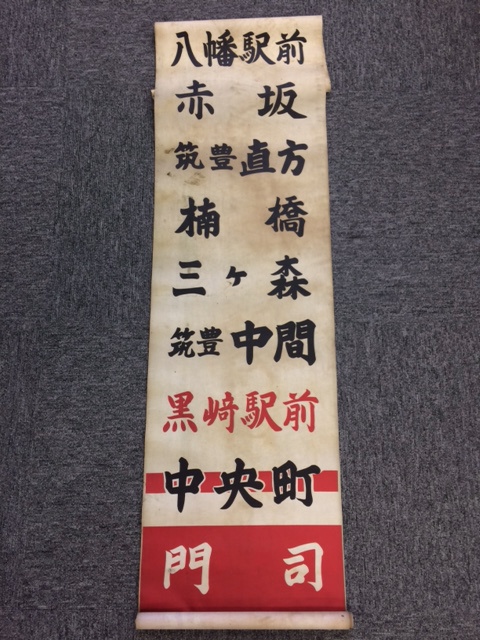 八幡駅前
赤坂
筑豊直方
楠橋
三ヶ森
筑豊中間
黒﨑駅前
中央町
門司